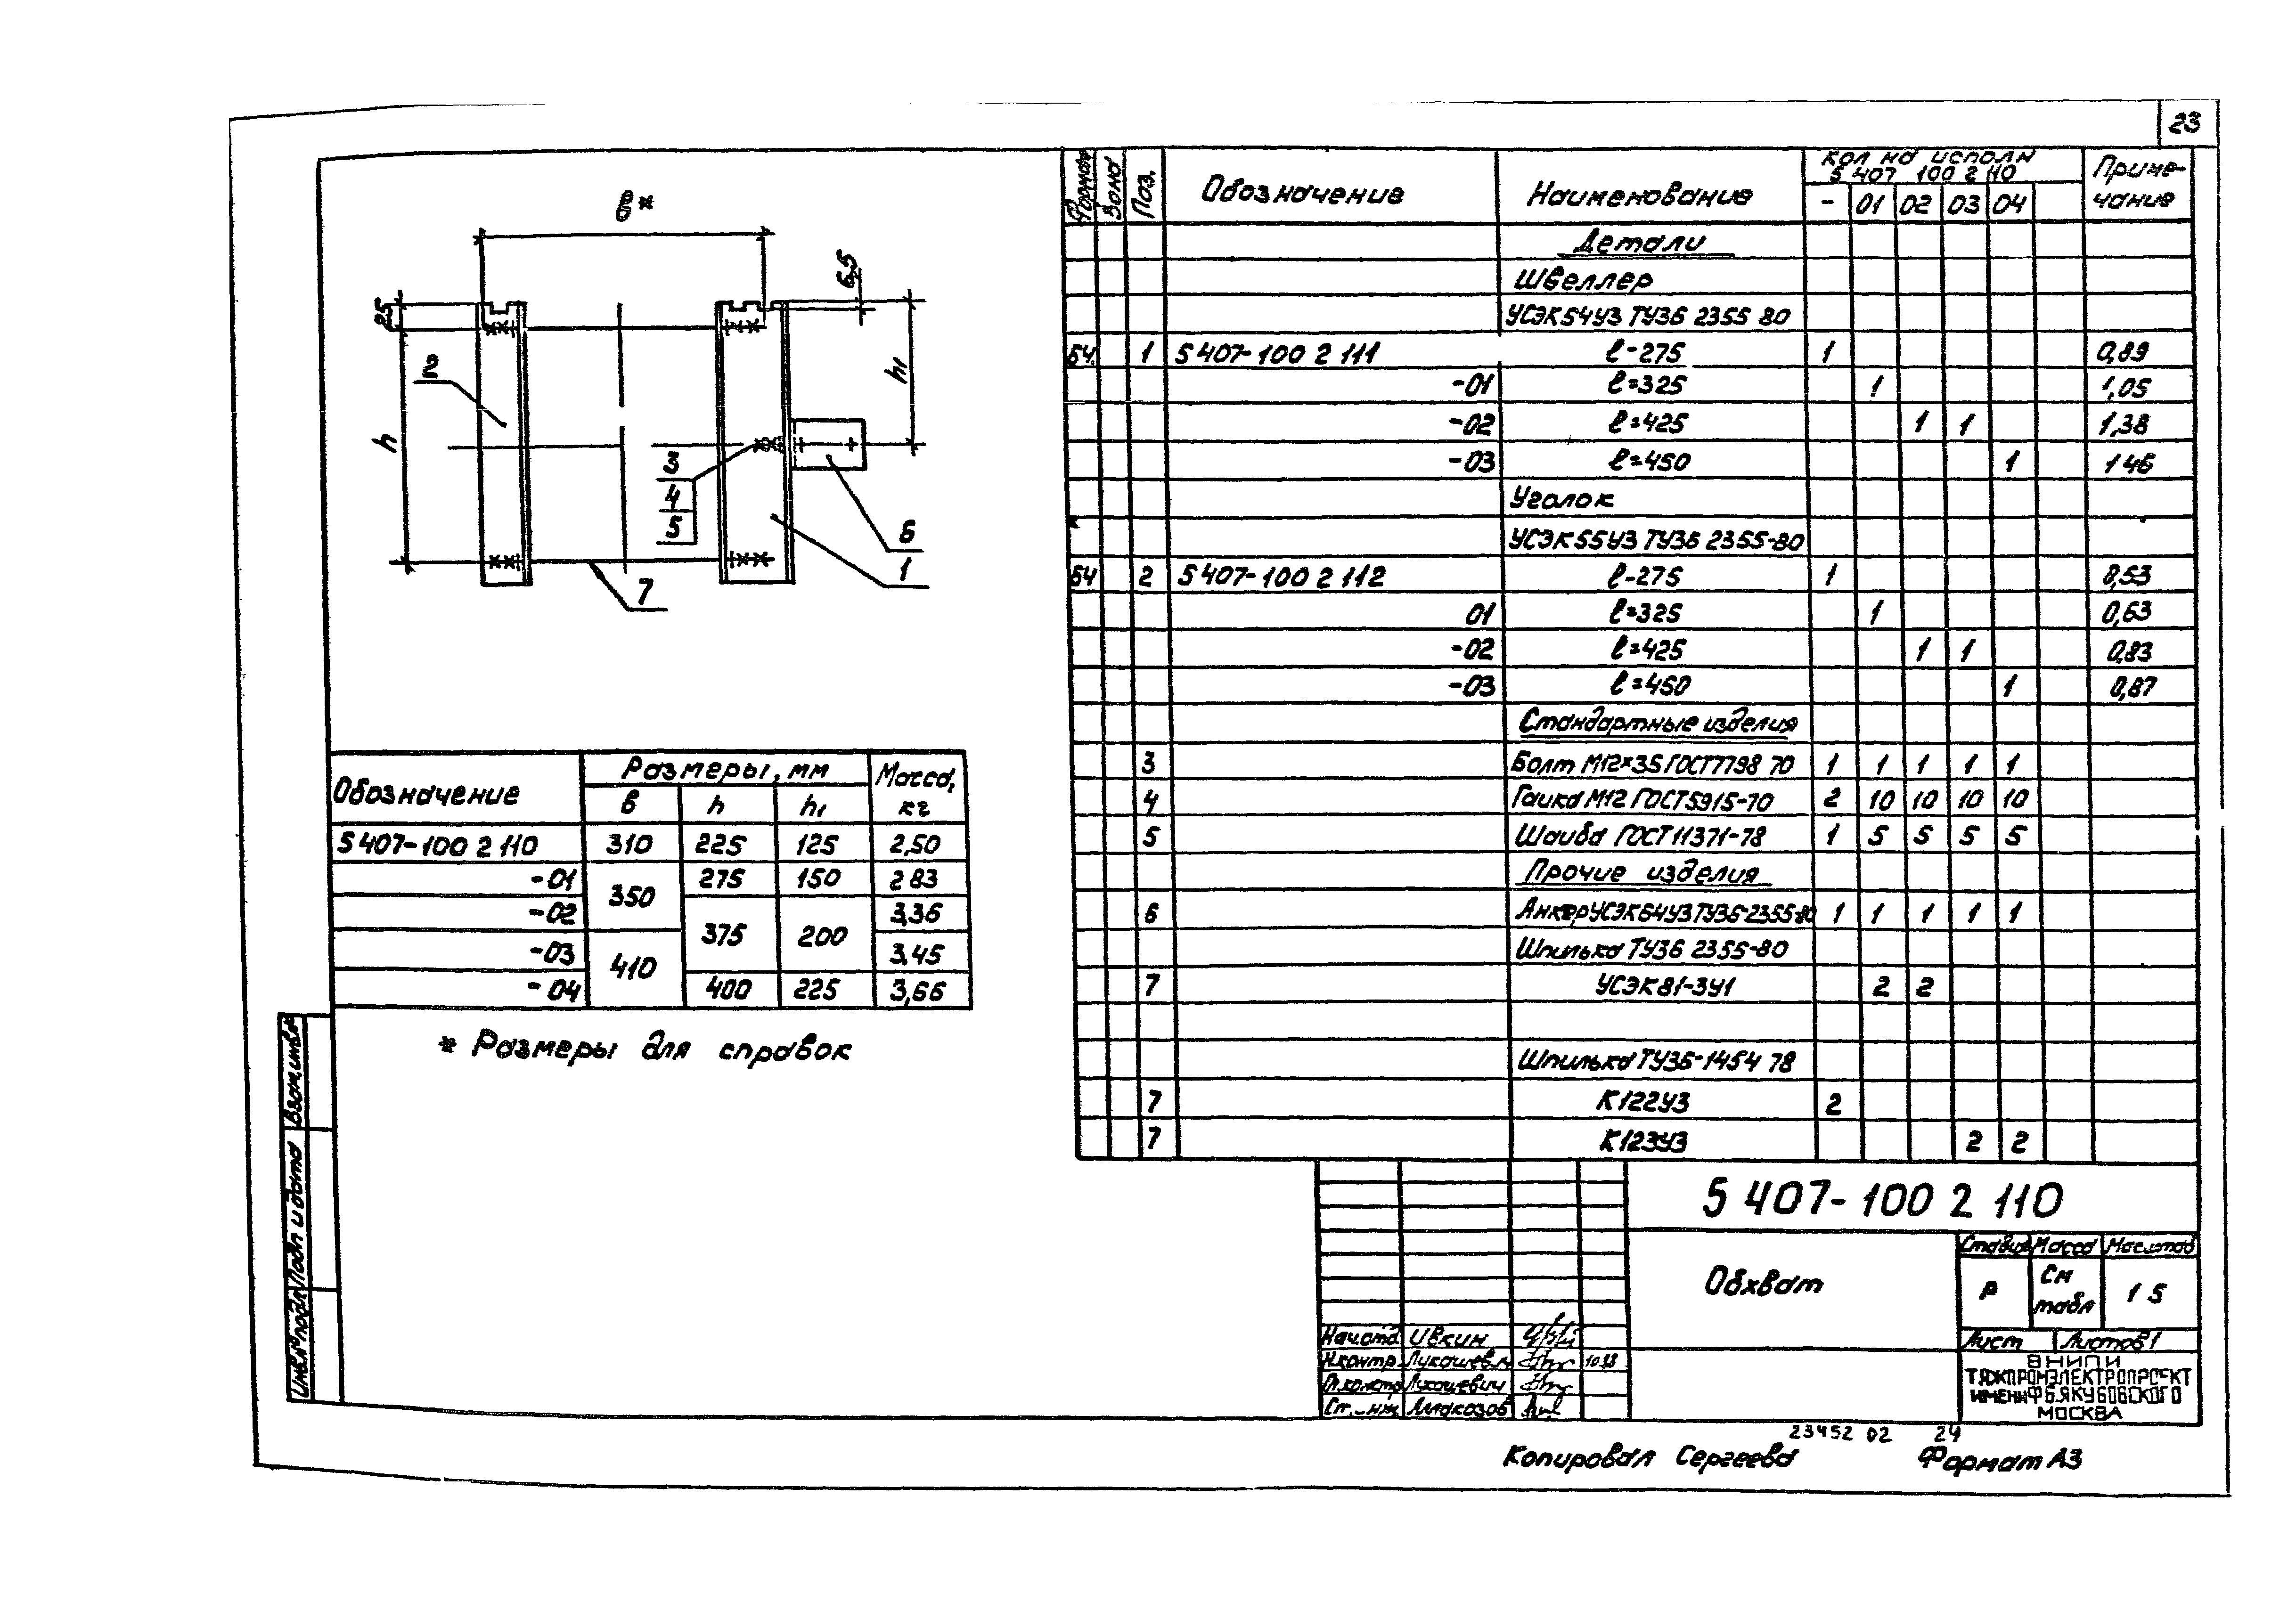 23
в*
6,5
25
h
h1
2
3
4
5
6
1
7
Обозначение Размеры, мм Масса, кг
в h h1
5 407-100 2 110 310 225 125 2,50
-01 350 275 150 2 83
-02 375 200 3,36
-03 410 3,45
-04 400 225 3,66
* Размеры для справок
Формат Зона Поз. Обозначение Наименование кол на исполн Приме-
5 407 100 2 110 чание
- 01 02 03 04
Детали
Швеллер
УСЭК54У3 ТУ36 2355 80
БЧ. 1 5 407-100 2 111 ℓ-275 1 0,89
-01 ℓ=325 1 1,05
-02 ℓ=425 1 1 1,38
-03 ℓ=450 1 1 46
Уголок
УСЭК55У3 ТУ36 2355-80
БЧ 2 5 407-100 2 112 ℓ-275 1 0,53
01 ℓ=325 1 0,63
-02 ℓ=425 1 1 0,83
-03 ℓ=450 1 0,87
Стандартные изделия
3 Болт М12×35 ГОСТ7798 70 1 1 1 1 1
4 Гайка М12 ГОСТ5915-70 2 10 10 10 10
5 Шайба ГОСТ11371-78 1 5 5 5 5
Прочие изделия
6 Анкер УСЭК64У3 ТУ36-2355-80 1 1 1 1 1
Шпилька ТУ36 2355-80
7 УСЭК81-3У1 2 2
Шпилька ТУ36-1454 78
7 К122У3 2
7 К123У3 2 2
5 407-100 2 110
Обхват
Стадия Масса Масштаб
Р См табл 1 5
Лист Листов 1
ВНИПИ
ТЯЖПРОМЭЛЕКТРОПРОЕКТ
ИМЕНИ Ф.Б.ЯКУБОВСКОГО
МОСКВА
Нач.отд. Ивкин
Н.контр. Лукашевич 10.88
Гл.констр Лукашевич
Ст.инж
Взам.инв.№
Подп и дата
Инв.№ подл
23452 02 24
Копировал Сергеева Формат А3